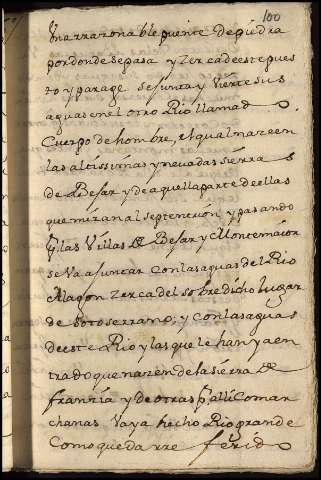 100
Una rrazonable puente de piedra
por donde se pasa y zerca de este pues
to y parage se junta y vierte sus
aguas en el otro Rio llamado
Cuerpo de hombre, el qual naze en
las altissimas y nevadas sierras
de Bejar y de aquella parte de ellas
que miran al septentrion y pasando
las Villas de Bejar y Montemaior
se va a juntar con las aguas del Rio
Alagon zerca del sobredicho lugar
de sotoserrano; y con las aguas
de este Rio y las que le han ya en
trado que nazen de la sierra de
franzia y de otras alli Comar
chanas Va ya hecho Rio grande
Como queda rre ferido